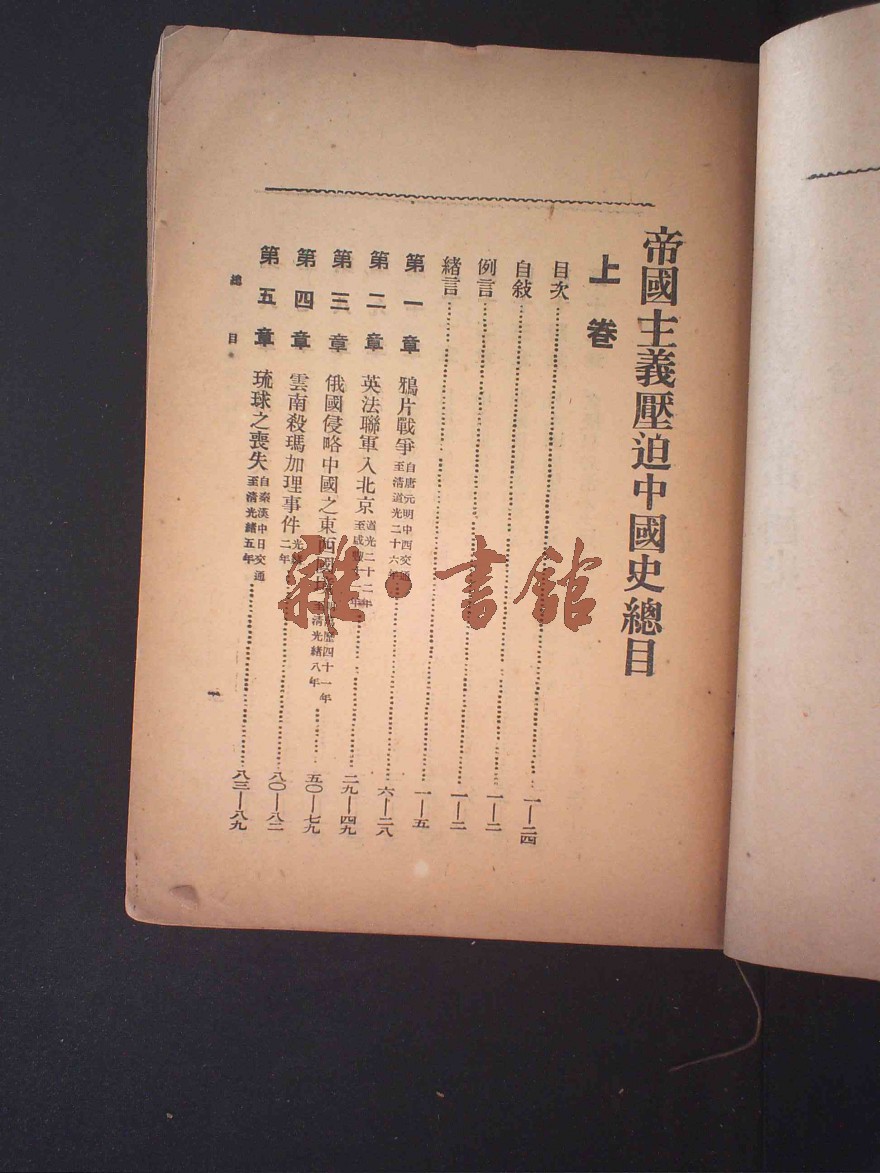 帝國主義壓迫中國史總目
上卷
目次……一—二四
自敍……一—二
例言……一—二
緒言……一—五
第一章 鴉片戰爭 自唐元明中西交通至清道光二十六年……六—二八
第二章 英法聯軍入北京 道光二十二年至咸豐十一年……二九—四九
第三章 俄國侵略中國之東西 曆四十一年至清光緒八年……五〇—七九
第四章 雲南殺瑪加理事件 光緒二年……八〇—八二
第五章 琉球之喪失 自秦漢中日交通至清光緒五年……八三—八九
總目
一
雜·書館